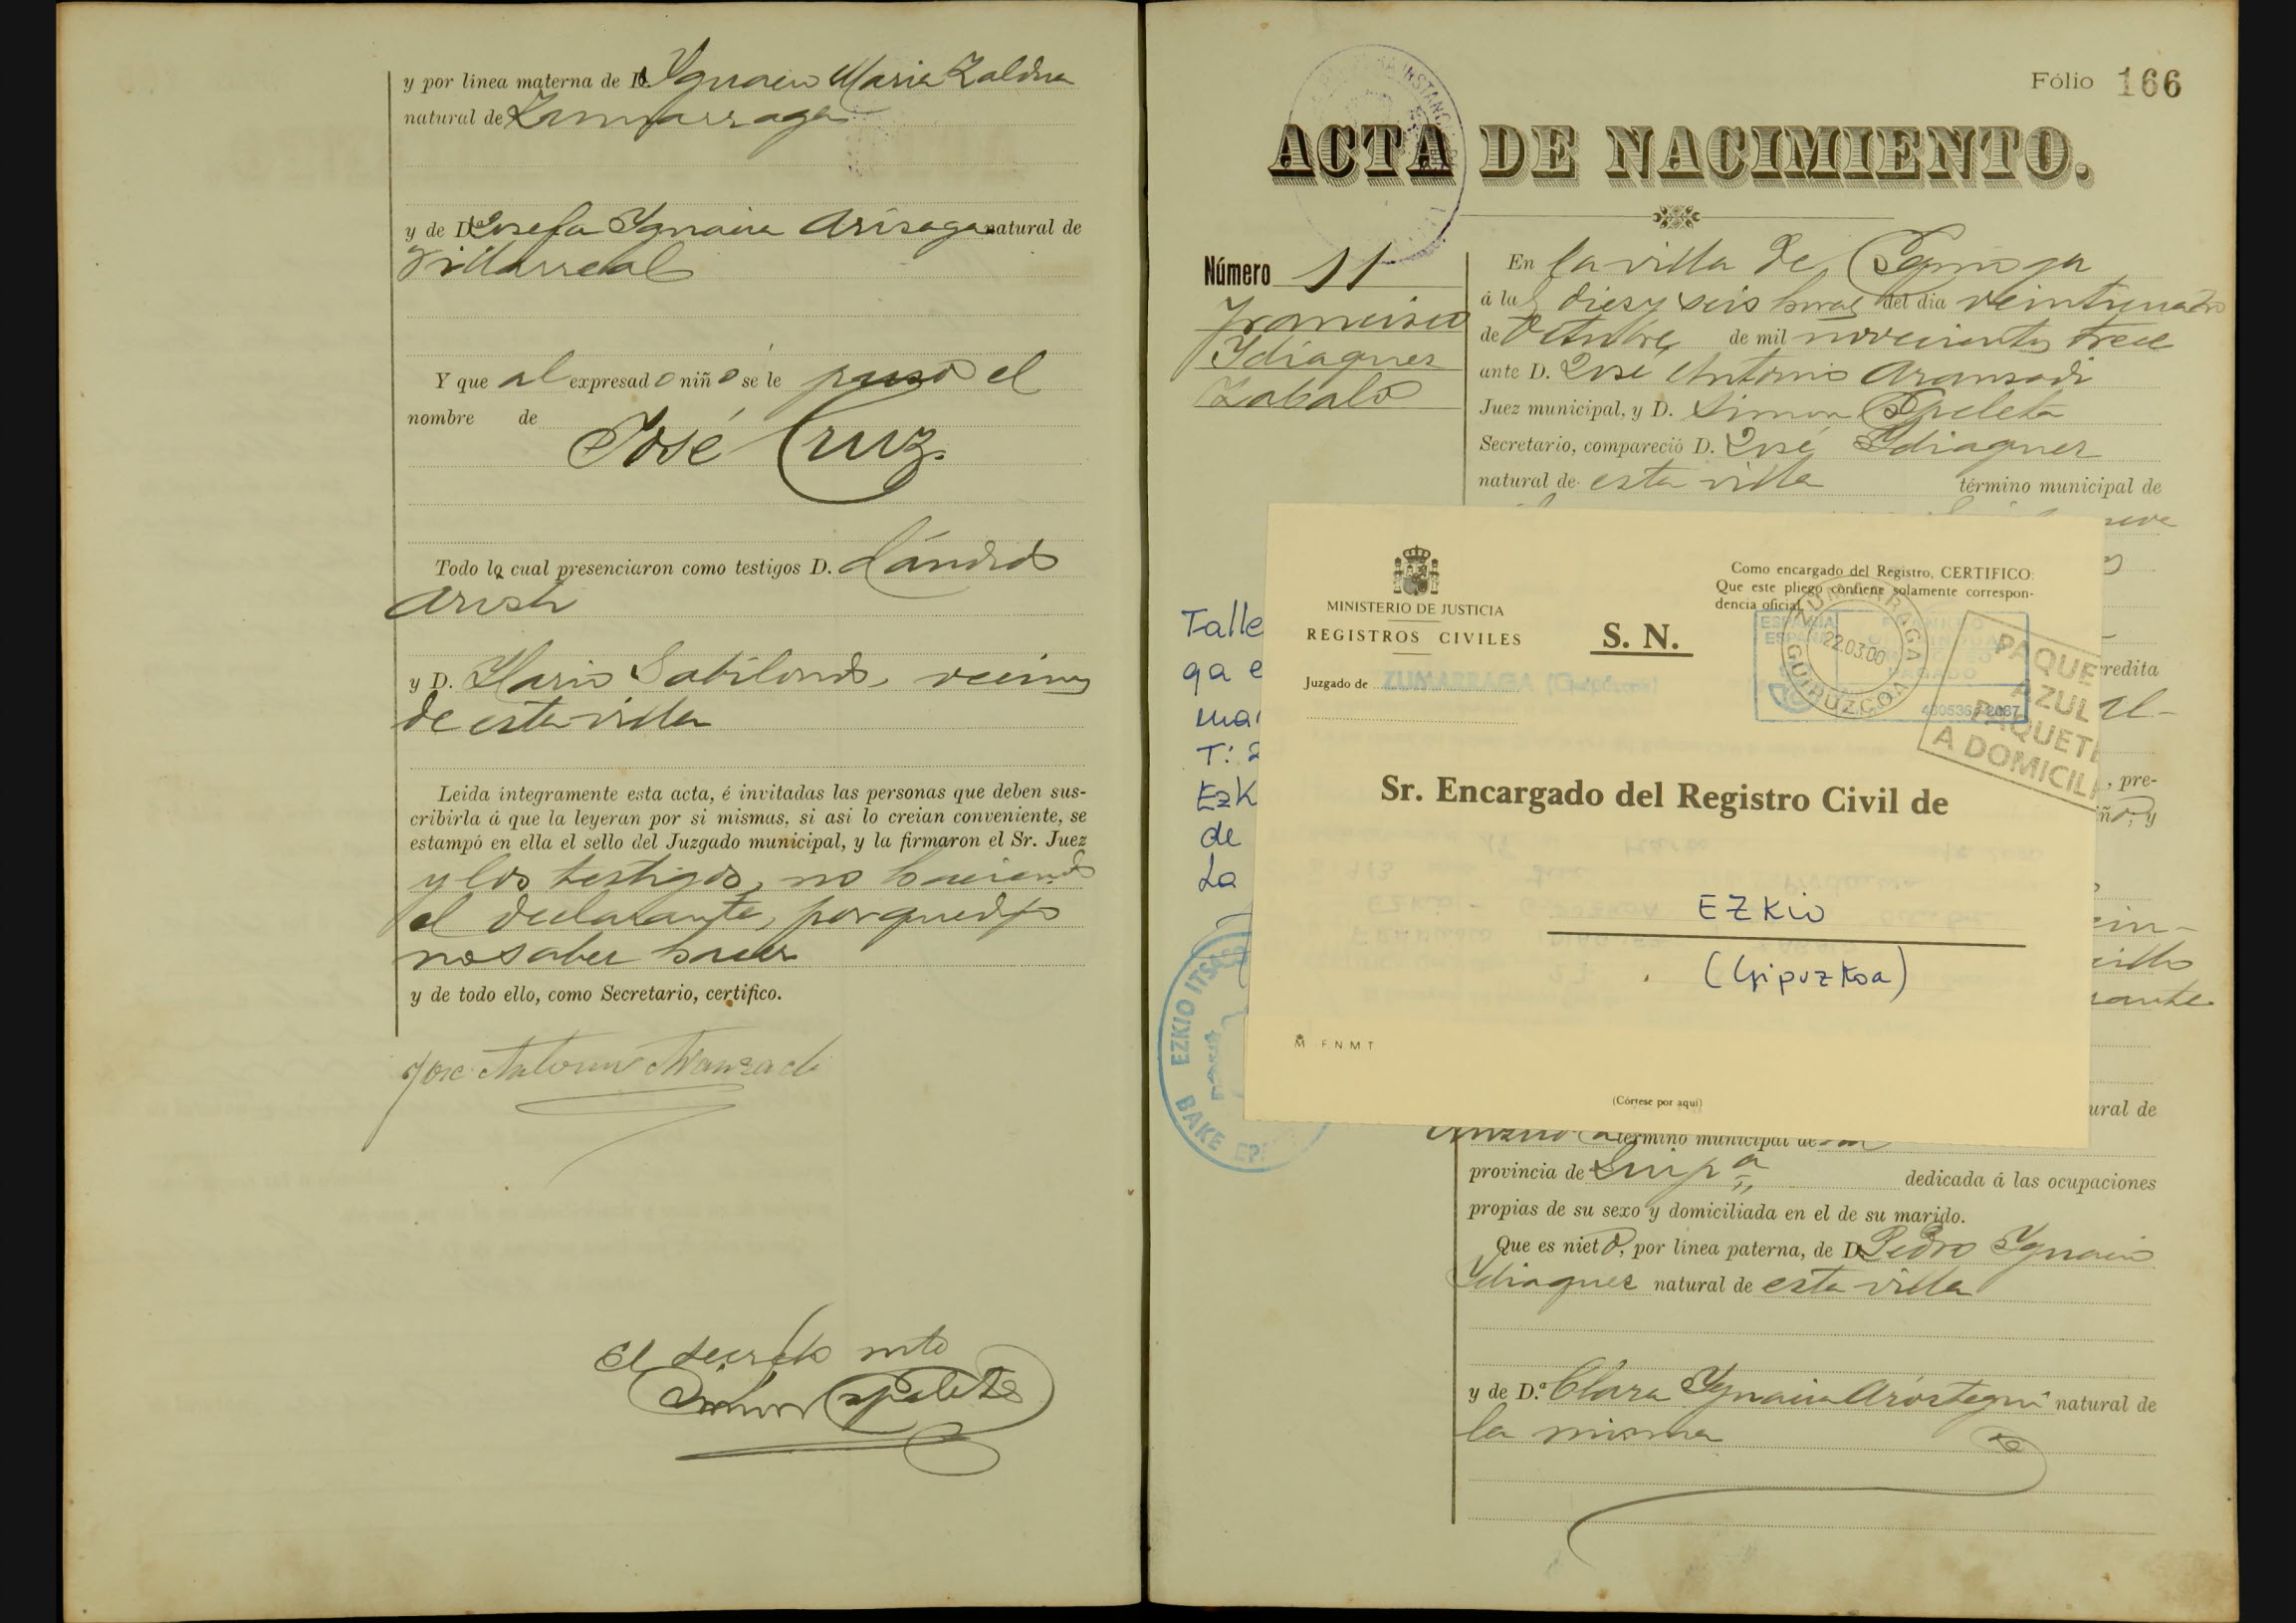 y por línea materna de D. Ygnacio Maria Zaldua
natural de Zumarraga
y de Dª Josefa Ygnacia Arisaga natural de
Villarreal
Y que al expresado niño se le puso el
nombre de
José Cruz.
Todo lo cual presenciaron como testigos D. Cándido
y D. Ylario Sabilondo, vecinos
de esta villa
Leida íntegramente esta acta, é invitadas las personas que deben sus-
cribirla á que la leyeran por si mismas, si asi lo creian conveniente, se
estampó en ella el sello del Juzgado municipal, y la firmaron el Sr. Juez
y los testigos, no haciendo
el declarante, porque dijo
no saber hacer
y de todo ello, como Secretario, certifico.
Jose Antonio Aranzadi
El Secreto
Simon Epelete
Fólio 166
ACTA DE NACIMIENTO.
Número 11
Francisco
Ydiaquez
Zabalo
En la villa de
á las diez y seis horas del dia veinticuatro
de Octubre de mil novecientos trece
ante D. José Antonio Aransadi
Juez municipal, y D. Simon Epeleta
Secretario, compareció D. José Ydiaquez
natural de esta villa término municipal de
Talle
ga e
mar
T:
Ezk
de
La
EZKIO ITSASO
BAKE EP
MINISTERIO DE JUSTICIA
REGISTROS CIVILES
Juzgado de ZUMARRAGA (Guipúzcoa)
S. N.
Como encargado del Registro, CERTIFICO:
Que este pliego contiene solamente correspon-
dencia oficial.
ZUMARRAGA
22.03.00
GUIPUZCOA
ESPAÑA
FRANQUEO
PAGADO
PAQUE
AZUL
PAQUETE
A DOMICILI
Sr. Encargado del Registro Civil de
EZKIO
(Gipuzkoa)
F N M T
(Córtese por aquí)
redita
, pre-
iño, y
rante
ural de
término municipal de
provincia de Guipª dedicada á las ocupaciones
propias de su sexo y domiciliada en el de su marido.
Que es nieto, por línea paterna, de D. Pedro Ygnacio
Ydiaquez natural de esta villa
y de D.ª Clara Ygnacia Aróstegui natural de
la misma